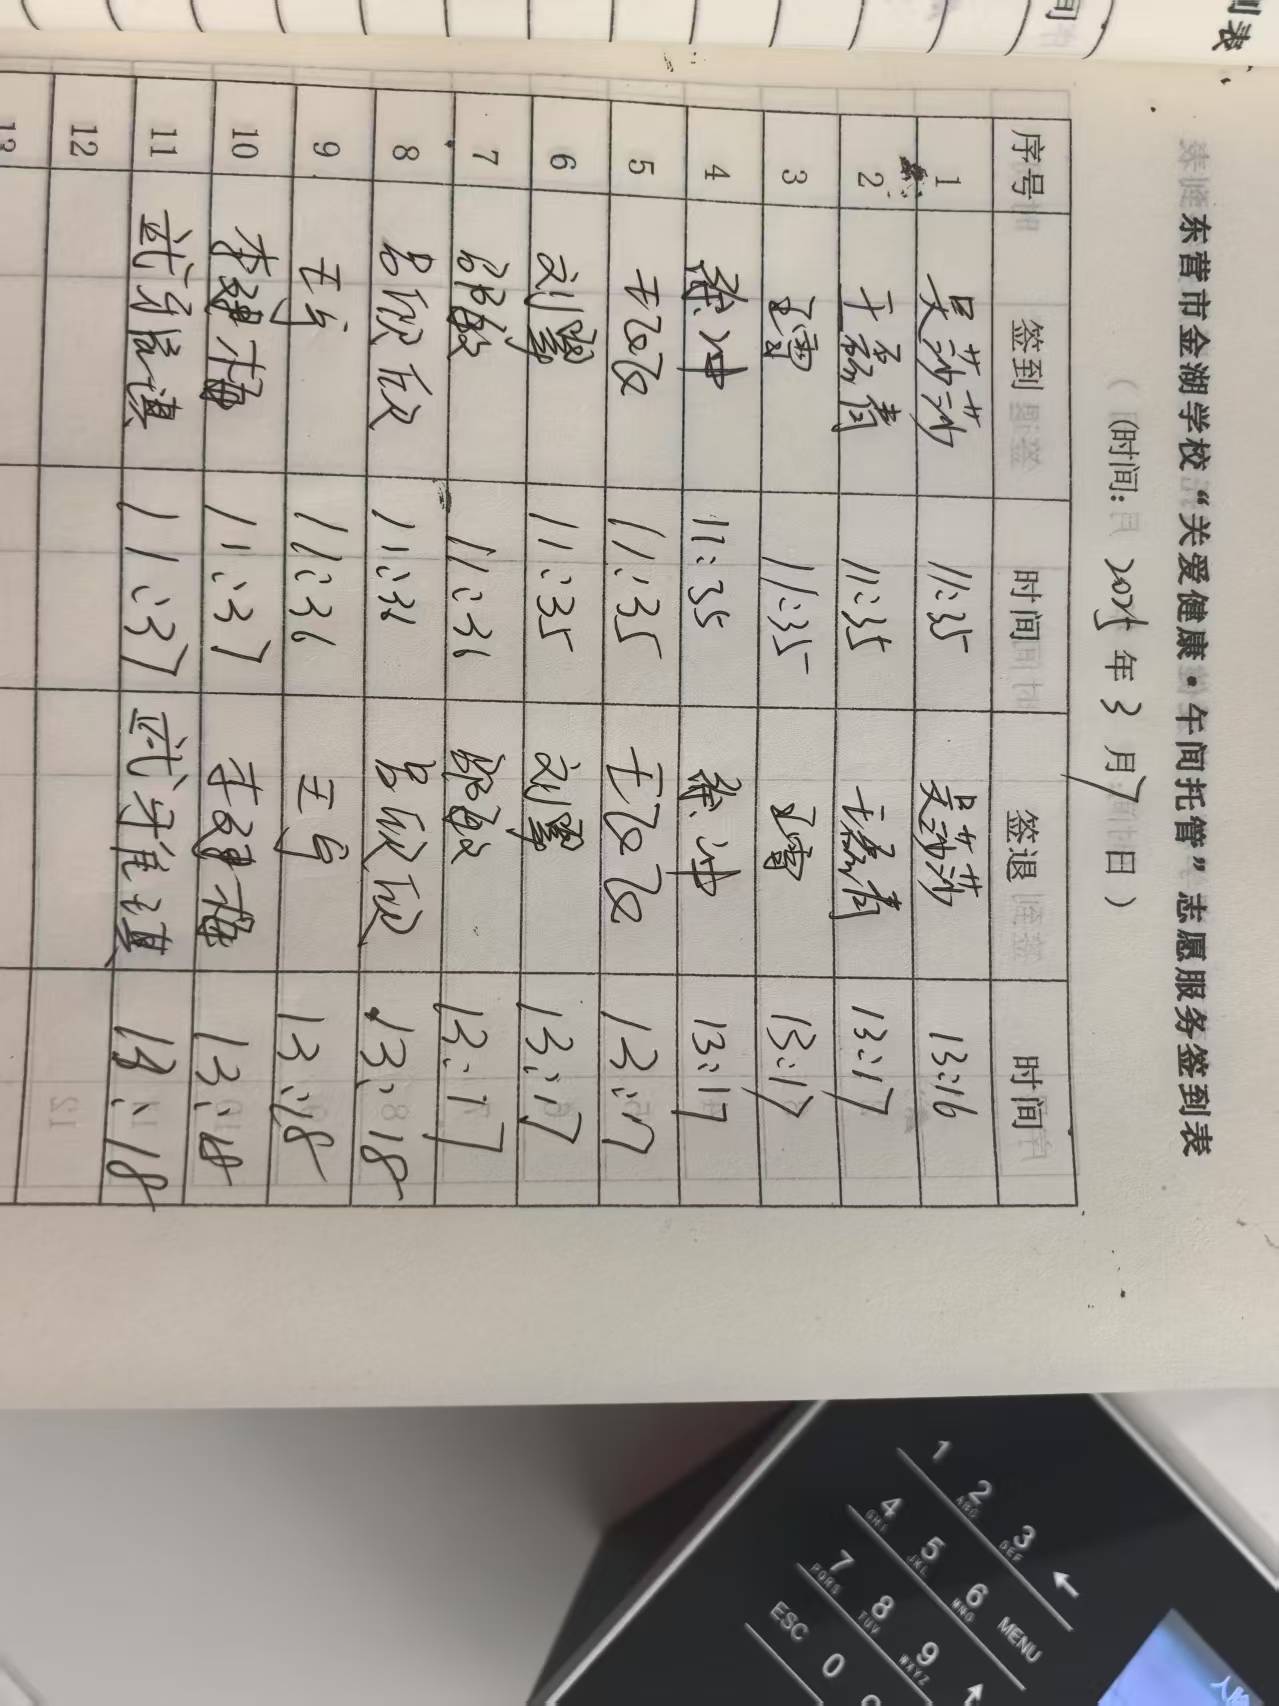 东营市金湖学校“关爱健康·午间托管”志愿服务签到表
(时间: 2025 年 3 月 7 日)
序号 签到 时间 签退 时间
1 吴莎莎 11:35 吴莎莎 13:16
2 11:35 13:17
3 王雪 11:35 王雪 13:17
4 徐冲 11:35 徐冲 13:17
5 11:35 13:17
6 刘翠 11:35 刘翠 13:17
7 邵敏 11:36 邵敏 13:17
8 吕欣欣 11:36 吕欣欣 13:18
9 11:36 13:18
10 李建梅 11:37 李建梅 13:18
11 11:37 13:18
12
1 2 ABC 3 DEF
4 GHI 5 JKL 6 MNO MENU
7 PQRS 8 TUV 9 WXYZ
ESC 0